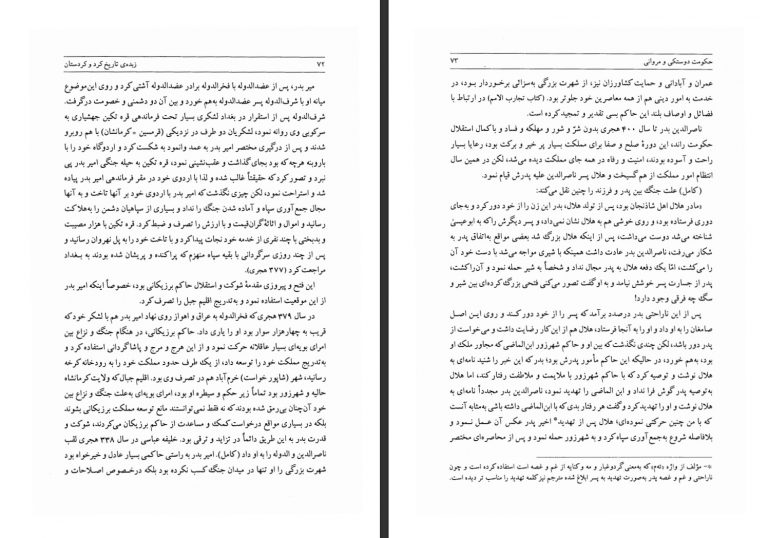 ۷۲ زبده‌ی تاریخ کرد و کردستان
میر بدر، پس از عضدالدوله با فخرالدوله برادر عضدالدوله آشتی کرد و روی این موضوع
میانه او با شرف‌الدوله پسر عضدالدوله به‌هم خورد و بین آن دو دشمنی و خصومت درگرفت.
شرف‌الدوله پس از استقرار در بغداد لشکری بسیار تحت فرماندهی قره تکین جهشیاری به
سرکوبی وی روانه نمود، لشکریان دو طرف در نزدیکی (قرمسین =کرمانشان) با هم روبرو
شدند و پس از درگیری مختصر امیر بدر به عمد وانمود به شکست کرد و اردوگاه خود را با
باروبنه هرچه که بود بجای گذاشت و عقب‌نشینی نمود، قره تکین به حیله جنگی امیر بدر پی
نبرد و تصور کرد که حقیقتاً غالب شده و لذا با اردوی خود در مقر فرماندهی امیر بدر پیاده
شد و استراحت نمود، لکن چیزی نگذشت که امیر بدر با اردوی خود بر آنها تاخت و به آنها
مجال جمع‌آوری سپاه و آماده شدن جنگ را نداد و بسیاری از سپاهیان دشمن را به‌هلاکت
رسانید و اموال و اثاثهٔ گران‌قیمت و با ارزش را تصرف و ضبط کرد. قره تکین با هزار مصیبت
و بدبختی با چند نفری از خدمه خود نجات پیدا کرد و با تاخت خود را به پل نهروان رسانید و
پس از چند روزی سرگردانی با بقیه سپاه منهزم که پراکنده و پریشان شده بودند به بغداد
مراجعت کرد (۳۷۷ هجری).
این فتح و پیروزی مقدمهٔ شوکت و استقلال حاکم برزیکانی بود، خصوصاً اینکه امیر بدر
از این موقعیت استفاده نمود و به‌تدریج اقلیم جبل را تصرف کرد.
در سال ۳۷۹ هجری که فخرالدوله به عراق و اهواز روی نهاد میر بدر هم با لشکر خود که
قریب به چهارهزار سوار بود او را یاری داد. حاکم برزیکانی، در هنگام جنگ و نزاع بین
امرای بویه‌ای بسیار عاقلانه حرکت نمود و از این هرج و مرج و پاشاگردانی استفاده کرد و
به‌تدریج مملکت خود را توسعه داد، از یک طرف حدود مملکت خود را به رودخانه کرخه
رسانید، شهر (شاپور خواست) خرم‌آباد هم در تصرف وی بود. اقلیم جبال که ولایت کرمانشاه
حالیه و شهرزور بود تماماً زیر حکم و سیطره او بود، امرای بویه‌ای به‌علت جنگ و نزاع بین
خود آن‌چنان بی‌رمق شده بودند که نه فقط نمی‌توانستند مانع توسعه مملکت برزیکانی بشوند
بلکه در بسیاری مواقع درخواست کمک و مساعدت از حاکم برزیکان می‌کردند، شوکت و
قدرت بدر به این طریق دائماً در تزاید و ترقی بود. خلیفه عباسی در سال ۳۳۸ هجری لقب
ناصرالدین و الدوله را به او داد (کامل). امیر بدر به راستی حاکمی بسیار عادل و خیرخواه بود
شهرت بزرگی را او تنها در میدان جنگ کسب نکرده بود بلکه درخصوص اصلاحات و
حکومت دوستکی و مروانی ۷۳
عمران و آبادانی و حمایت کشاورزان نیز، از شهرت بزرگی به‌سزائی برخوردار بود، در
خدمت به امور دینی هم از همه معاصرین خود جلوتر بود. (کتاب تجارب الامم) در ارتباط با
فضائل و اوصاف بلند این حاکم بسی تقدیر و تمجید کرده است.
ناصرالدین بدر تا سال ۴۰۰ هجری بدون شرّ و شور و مهلکه و فساد و با کمال استقلال
حکومت راند، این دورهٔ صلح و صفا برای مملکت بسیار پر خیر و برکت بود، رعایا بسیار
راحت و آسوده بودند، امنیت و رفاه در همه جای مملکت دیده می‌شد، لکن در همین سال
انتظام امور مملکت از هم گسیخت و هلال پسر ناصرالدین علیه پدرش قیام نمود.
(کامل) علت جنگ بین پدر و فرزند را چنین نقل می‌کند:
«مادر هلال اهل شاذنجان بود، پس از تولد هلال، بدر این زن را از خود دور کرد و به‌جای
دوری فرستاده بود، و روی خوشی هم به هلال نشان نمی‌داد، و پسر دیگرش را که به ابوعیسیٰ
شناخته می‌شد دوست می‌داشت، پس از اینکه هلال بزرگ شد بعضی مواقع به‌اتفاق پدر به
شکار می‌رفت، ناصرالدین بدر عادت داشت همینکه با شیری مواجه می‌شد با دست خود آن
را می‌کشت، امّا یک دفعه هلال به پدر مجال نداد و شخصاً به شیر حمله نمود و آن‌را کشت،
پدر از جسارت پسر خوشش نیامد و به او گفت تصور می‌کنی فتحی بزرگ کرده‌ای بین شیر و
سگ چه فرقی وجود دارد!
پس از این ناراحتی بدر درصدد برآمد که پسر را از خود دور کند و روی ایـن اصـل
صامغان را به او داد و او را به آنجا فرستاد، هلال هم از این کار رضایت داشت و می‌خواست از
پدر دور باشد، لکن چندی نگذشت که بین او و حاکم شهرزور ابن‌الماضی که مجاور ملک او
بود، به‌هم خورد، در حالیکه این حاکم مأمور پدرش بود؛ بدر که این خبر را شنید نامه‌ای به
هلال نوشت و توصیه کرد که با حاکم شهرزور با ملایمت و ملاطفت رفتار کند، اما هلال
به‌توصیه پدر گوش فرا نداد و ابن الماضی را تهدید نمود، ناصرالدین بدر مجدداً نامه‌ای به
هلال نوشت و او را تهدید کرد و گفت هر رفتار بدی که با ابن‌الماضی داشته باشی به‌مثابه آنست
که با من چنین حرکتی نموده‌ای؛ هلال پس از تهدید* اخیر پدر عکس آن عمـل نـمود و
بلافاصله شروع به‌جمع آوری سپاه کرد و به شهرزور حمله نمود و پس از محاصره‌ای مختصر
*- مؤلف از واژه «ته‌م» که به‌معنی گرد و غبار و مه و کنایه از غم و غصه است استفاده کرده است و چون
ناراحتی و غم و غصه پدر به‌صورت تهدید به پسر ابلاغ شده مترجم نیز کلمه تهدید را مناسب تر دیده است.